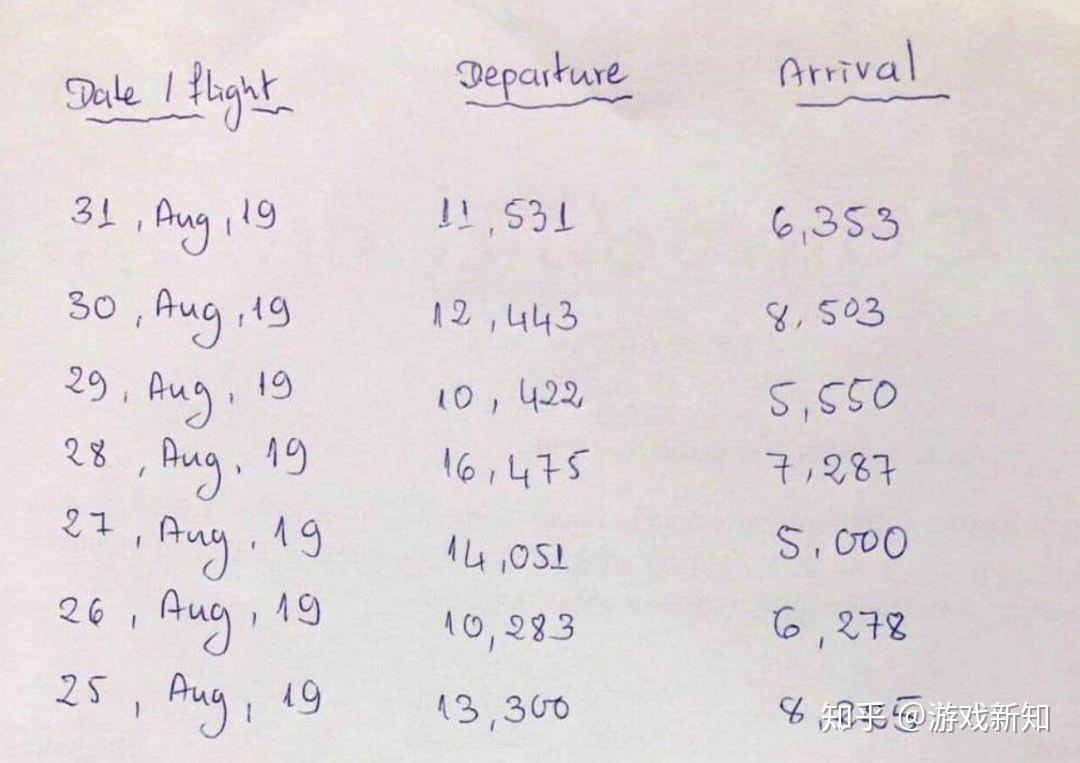 Date / flight Departure Arrival
31, Aug, 19 11,531 6,353
30, Aug, 19 12,443 8,503
29, Aug, 19 10,422 5,550
28, Aug, 19 16,475 7,287
27, Aug, 19 14,051 5,000
26, Aug, 19 10,283 6,278
25, Aug, 19 13,300
知乎 @游戏新知